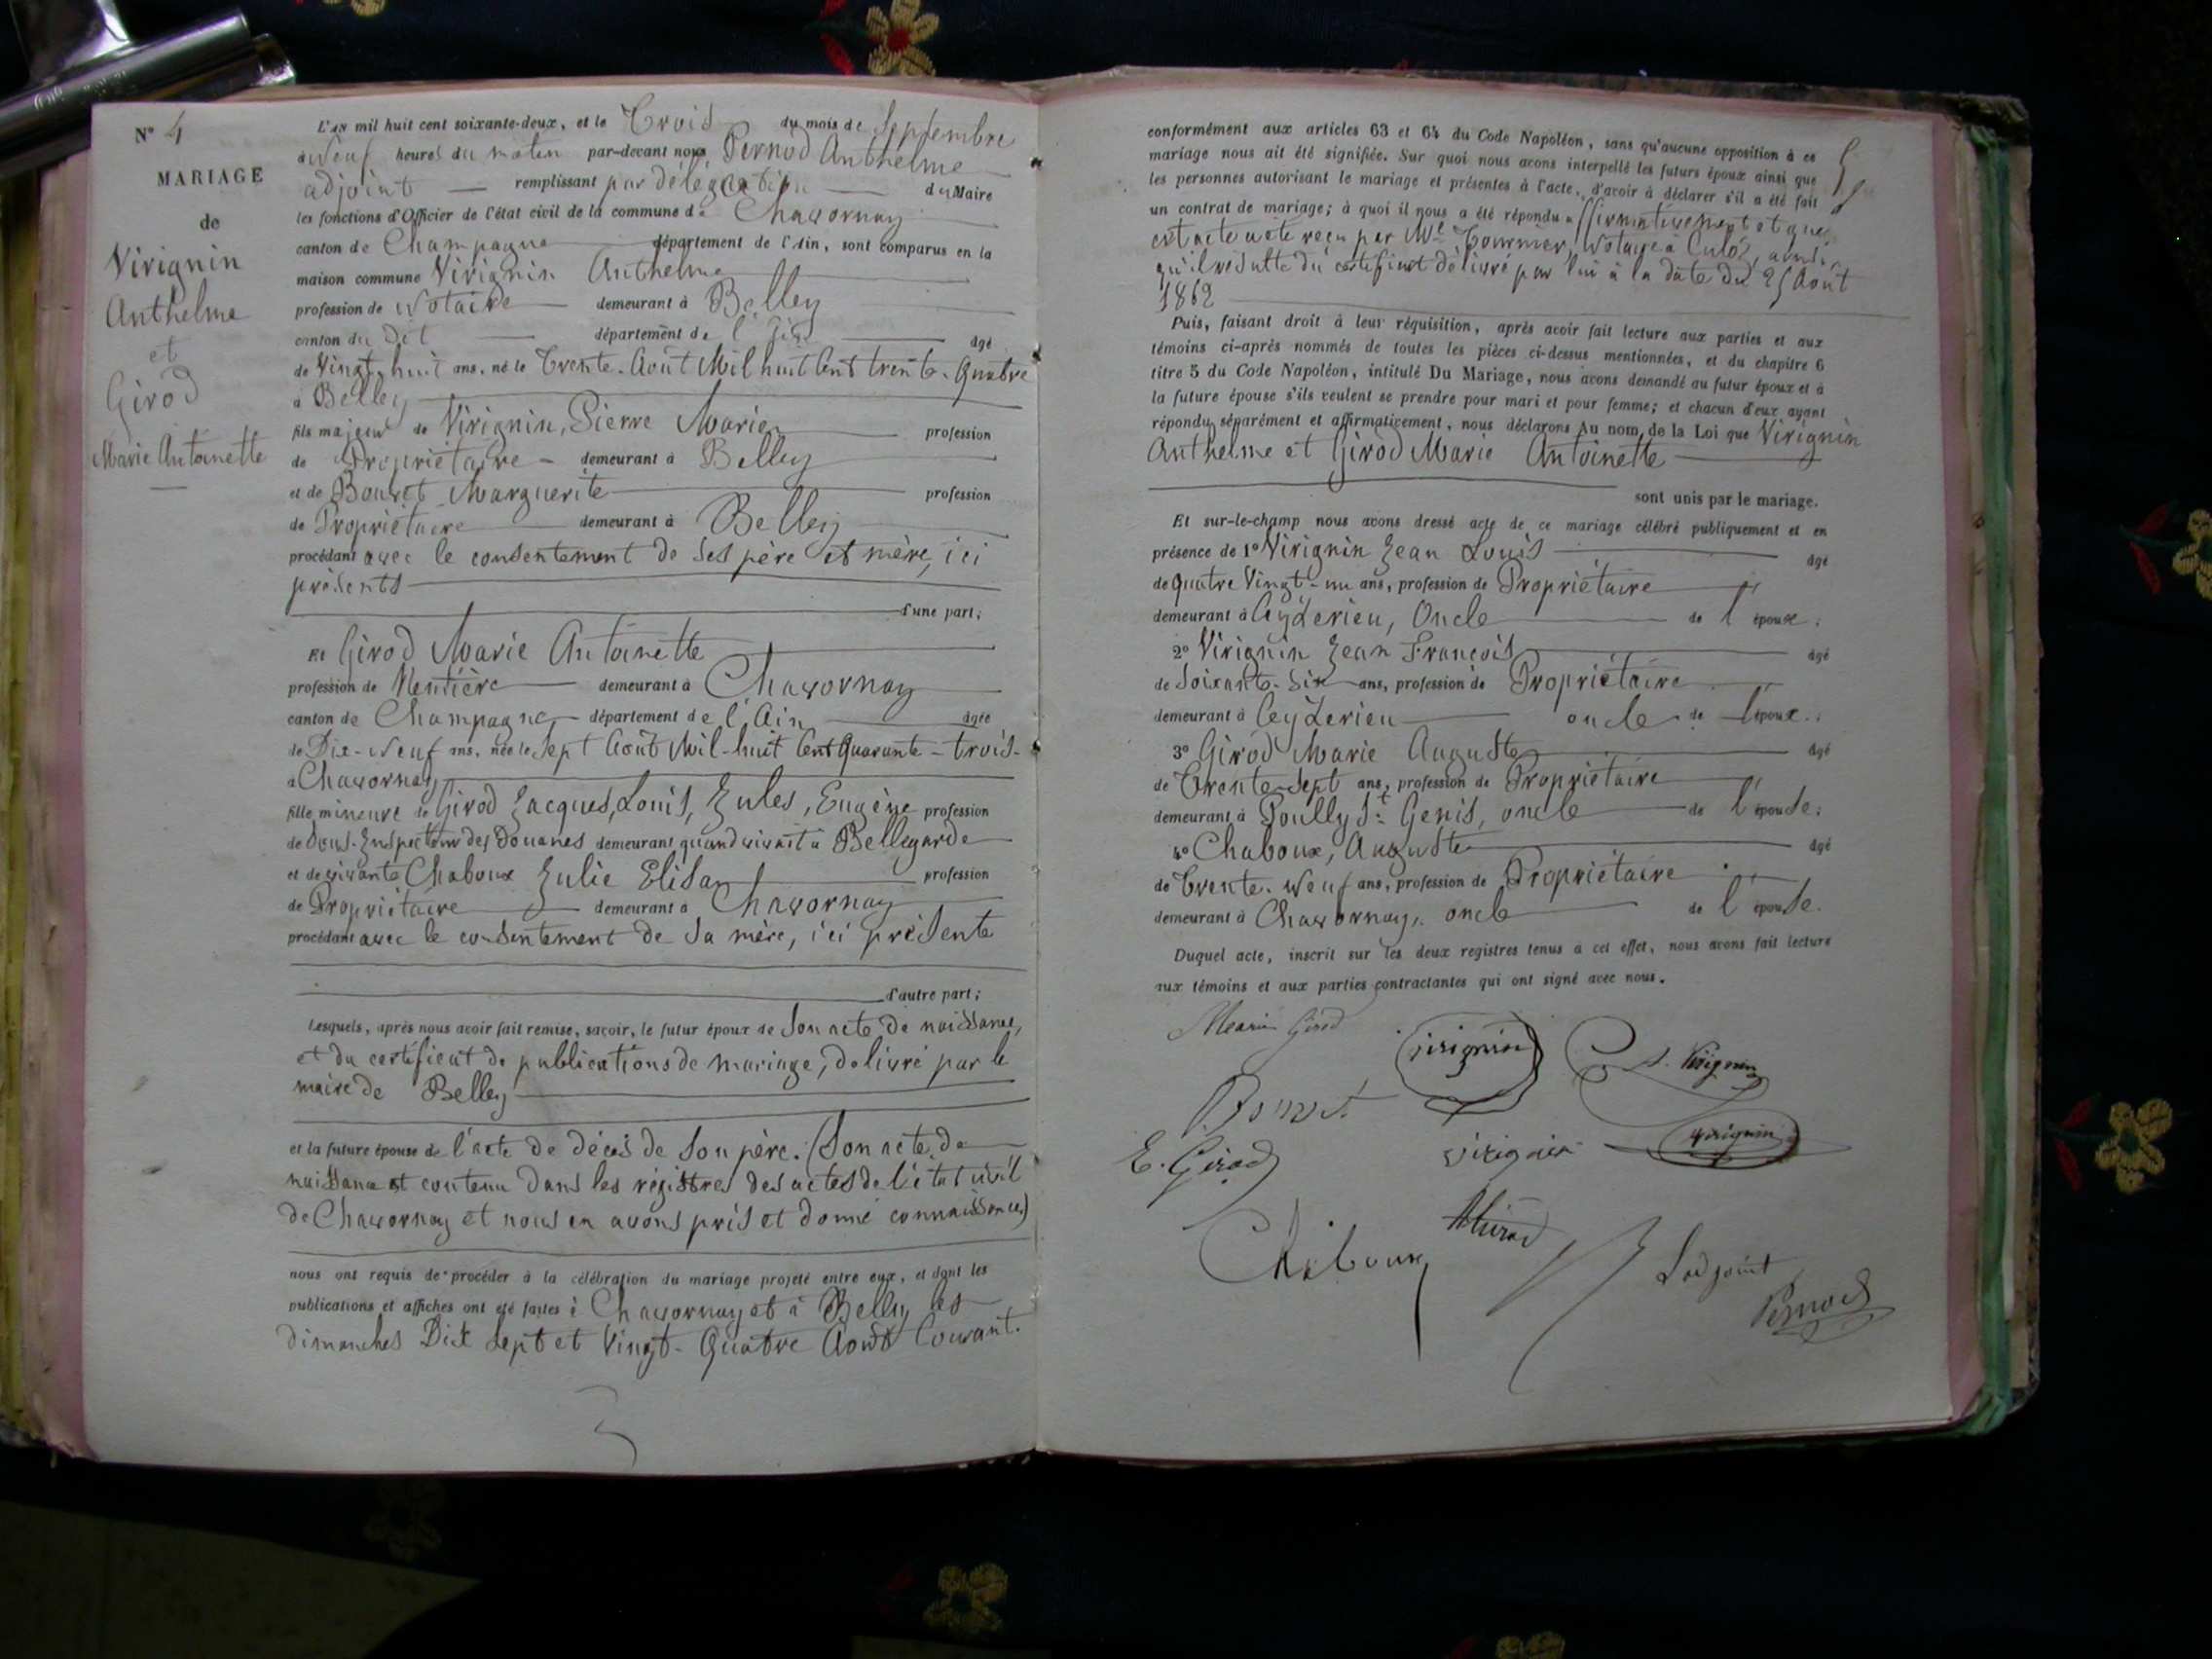 N° 4
MARIAGE
de
Virignin
Anthelme
et
Girod
Marie Antoinette
L'an mil huit cent soixante-deux, et le Trois du mois de Septembre
à Neuf heures du matin par-devant nous, Pernod Anthelme
adjoint remplissant par délégation du Maire
les fonctions d'Officier de l'état civil de la commune de Chavornay
canton de Champagne département de l'Ain, sont comparus en la
maison commune Virignin Anthelme
profession de Notaire demeurant à Belley
canton du Dit département de l'Ain âgé
de Vingt-huit ans, né le Trente Août Mil huit Cent trente-Quatre
à Belley
fils majeur de Virignin, Pierre Marie profession
de Propriétaire demeurant à Belley
et de Bouvet Marguerite profession
de Propriétaire demeurant à Belley
procédant avec le consentement de ses père et mère, ici
présents
d'une part;
Et Girod Marie Antoinette
profession de Rentière demeurant à Chavornay
canton de Champagne département de l'Ain âgée
de Dix-Neuf ans, née le Sept Août Mil-huit Cent Quarante-trois
à Chavornay
fille mineure de Girod Jacques, Louis, Jules, Eugène profession
de Sous-Inspecteur des Douanes demeurant quand vivait à Bellegarde
et de vivante Chaboux Julie Elisa profession
de Propriétaire demeurant à Chavornay
procédant avec le consentement de sa mère, ici présente
d'autre part;
Lesquels, après nous avoir fait remise, savoir, le futur époux de Son acte de naissance,
et du certificat de publications de mariage, délivré par le
maire de Belley
et la future épouse de l'acte de décès de son père. (Son acte de
naissance est contenu dans les régistres des actes de l'état civil
de Chavornay et nous en avons pris et donné connaissance)
nous ont requis de procéder à la célébration du mariage projeté entre eux, et dont les
publications et affiches ont été faites à Chavornay et à Belley les
dimanches Dix sept et Vingt-Quatre Août Courant.
conformément aux articles 63 et 64 du Code Napoléon, sans qu'aucune opposition à ce
mariage nous ait été signifiée. Sur quoi nous avons interpellé les futurs époux ainsi que
les personnes autorisant le mariage et présentes à l'acte, d'avoir à déclarer s'il a été fait
un contrat de mariage; à quoi il nous a été répondu affirmativement et que
cet acte a été reçu par Me Tournier, Notaire à Culoz, ainsi
qu'il résulte du certificat délivré par lui à la date du 25 Août
1862
Puis, faisant droit à leur réquisition, après avoir fait lecture aux parties et aux
témoins ci-après nommés de toutes les pièces ci-dessus mentionnées, et du chapitre 6
titre 5 du Code Napoléon, intitulé Du Mariage, nous avons demandé au futur époux et à
la future épouse s'ils veulent se prendre pour mari et pour femme; et chacun d'eux ayant
répondu séparément et affirmativement, nous déclarons Au nom de la Loi que Virignin
Anthelme et Girod Marie Antoinette
sont unis par le mariage.
Et sur-le-champ nous avons dressé acte de ce mariage célébré publiquement et en
présence de 1° Virignin Jean Louis âgé
de Quatre Vingt-un ans, profession de Propriétaire
demeurant à Ceyzerieu, Oncle de l'époux.
2° Virignin Jean François âgé
de Soixante-Six ans, profession de Propriétaire
demeurant à Ceyzerieu oncle de l'époux.
3° Girod Marie Auguste âgé
de Trente-Sept ans, profession de Propriétaire
demeurant à Pouilly St Genis, oncle de l'épouse.
4° Chaboux, Auguste âgé
de Trente-Neuf ans, profession de Propriétaire
demeurant à Chavornay, oncle de l'épouse.
Duquel acte, inscrit sur les deux registres tenus à cet effet, nous avons fait lecture
aux témoins et aux parties contractantes qui ont signé avec nous.
Marie Girod
Virignin
Virignin
E. Girod
Virignin
Virignin
Chaboux
L'adjoint
Pernod